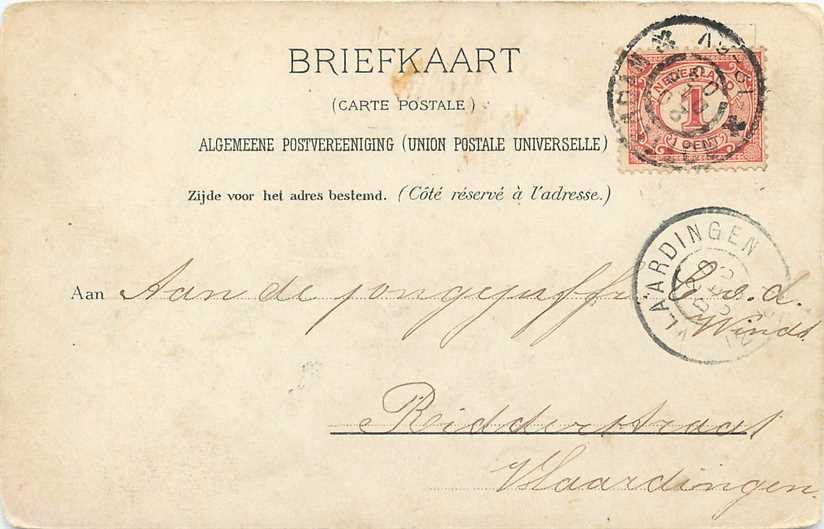 BRIEFKAART
(CARTE POSTALE)
ALGEMEENE POSTVEREENIGING (UNION POSTALE UNIVERSELLE)
Zijde voor het adres bestemd. (Côté réservé à l'adresse.)
NEDERLAND
1
1 CENT
VLAARDINGEN
Aan Aan de jongejuffr. G. v. d.
Winds
Ridderstraat
Vlaardingen